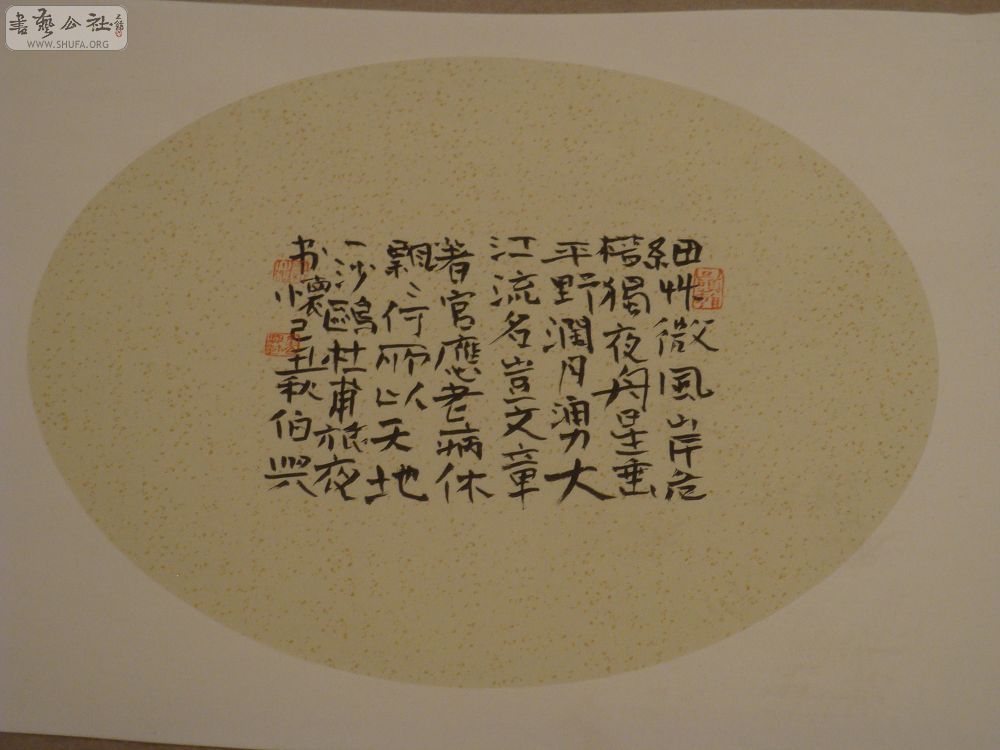 書藝公社
WWW.SHUFA.ORG
細艸微風岸危
樯獨夜舟星垂
平野濶月湧大
江流名豈文章
著官應老病休
飄〻何所以天地
一沙鷗杜甫旅夜
书懷己丑秋伯興